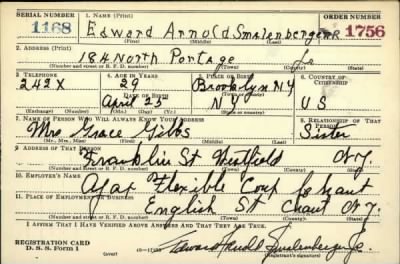 SERIAL NUMBER
1. NAME (Print)
ORDER NUMBER
1168
Edward Arnold Smalenberger JR
1756
(First) (Middle) (Last)
2. ADDRESS (Print)
184 North Portage
(Number and street or R. F. D. number) (Town) (County) (State)
3. TELEPHONE
4. AGE IN YEARS
5. PLACE OF BIRTH
6. COUNTRY OF CITIZENSHIP
242X
29
Brooklyn NY
DATE OF BIRTH
April 25
NY
US
(Exchange) (Number) (Mo.) (Day) (Yr.) (State or country)
7. NAME OF PERSON WHO WILL ALWAYS KNOW YOUR ADDRESS
8. RELATIONSHIP OF THAT PERSON
Mrs Grace Gibbs
Sister
(Mr., Mrs., Miss) (First) (Middle) (Last)
9. ADDRESS OF THAT PERSON
Franklin St Westfield N.Y.
(Number and street or R. F. D. number) (Town) (County) (State)
10. EMPLOYER'S NAME
Ajax Flexible Coup
11. PLACE OF EMPLOYMENT OR BUSINESS
English St N.Y.
(Number and street or R. F. D. number) (Town) (County) (State)
I AFFIRM THAT I HAVE VERIFIED ABOVE ANSWERS AND THAT THEY ARE TRUE.
REGISTRATION CARD
D. S. S. Form 1
(over)
Edward Arnold Smalenberger Jr.
(Registrant's signature)